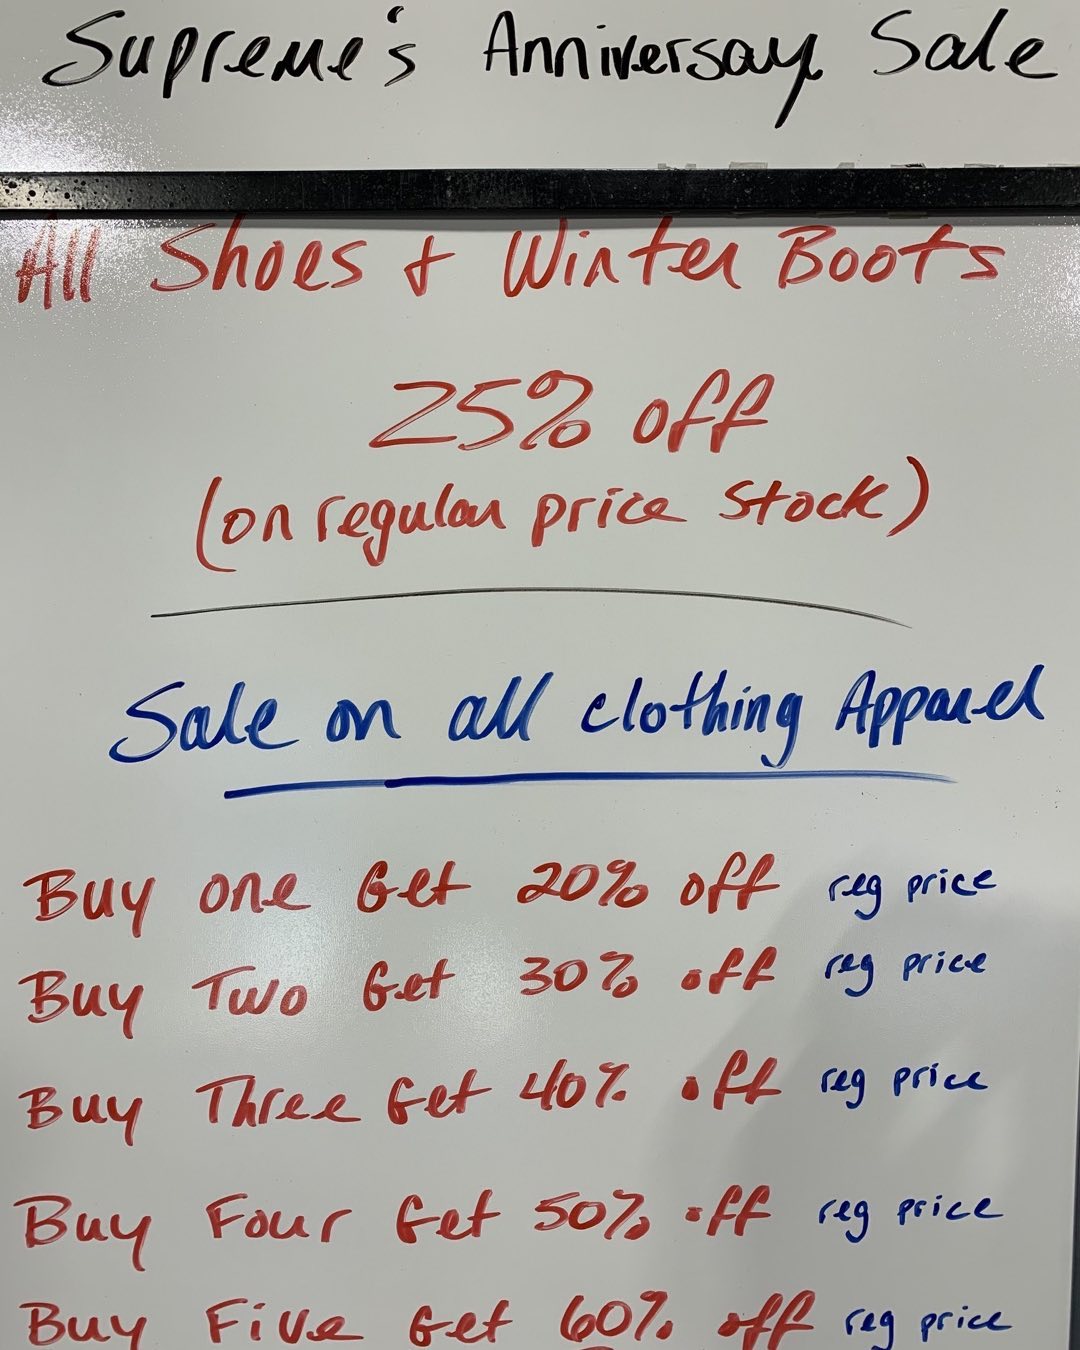 Supreme's Anniversay Sale
All Shoes + Winter Boots
25% off
(on regular price stock)
Sale on all clothing Apparel
Buy one Get 20% off reg price
Buy Two Get 30% off reg price
Buy Three Get 40% off reg price
Buy Four Get 50% off reg price
Buy Five Get 60% off reg price